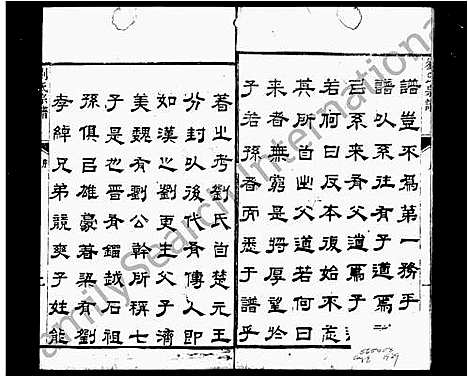 譜豈不為第一務乎
譜以系往有子道焉
以系來有父道焉子
若何曰反本復始不忘
其所自出父道若何曰
來者無窮是將厚望於
子若孫者而悉于譜乎
著之考劉氏自楚元王
分封以後代有傳人即
如漢之劉更生父子濟
美魏有劉公幹所稱七
子是也晉有錫越石祖
孫俱白雄豪著梁有劉
孝綽兄弟競爽子姓能
劉氏宗譜
familysearch international